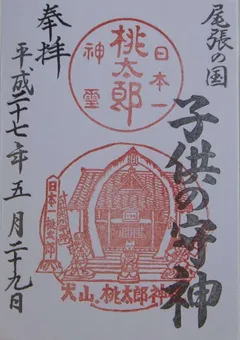 尾張の国
子供の守神
奉拝
日本一
桃太郎
神霊
犬山桃太郎神
平成二十七年五月二十九日